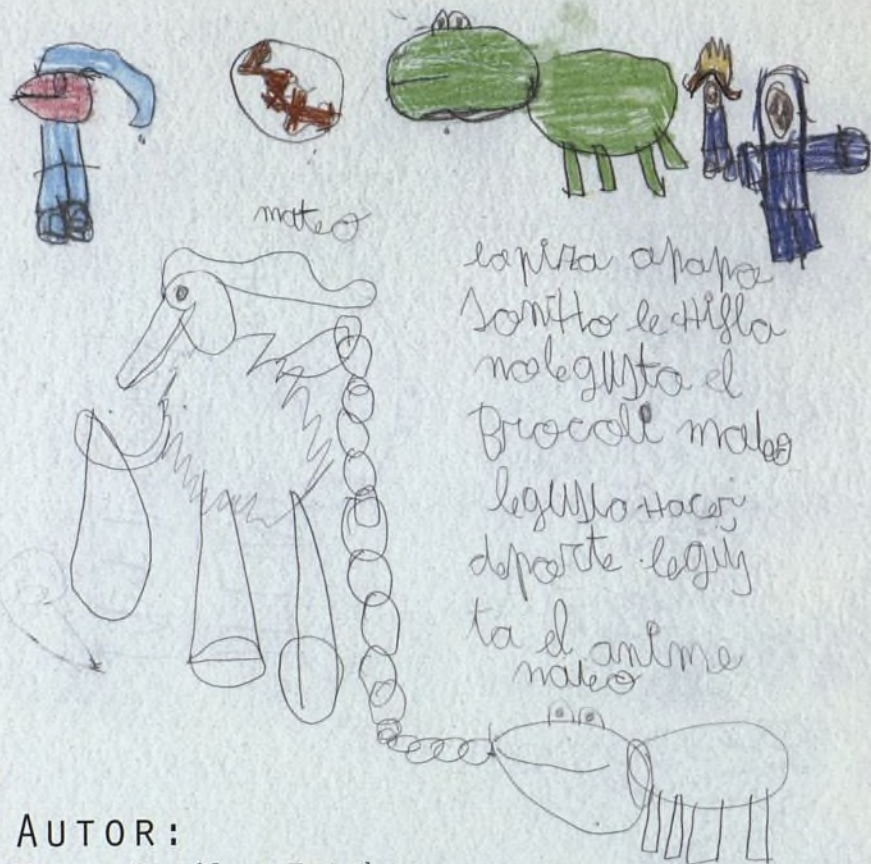 mateo
la pizza a papa
le
no le gusta el
Brocoli mateo
le gusta Hacer
deporte le gus
ta el anime
mateo
AUTOR: